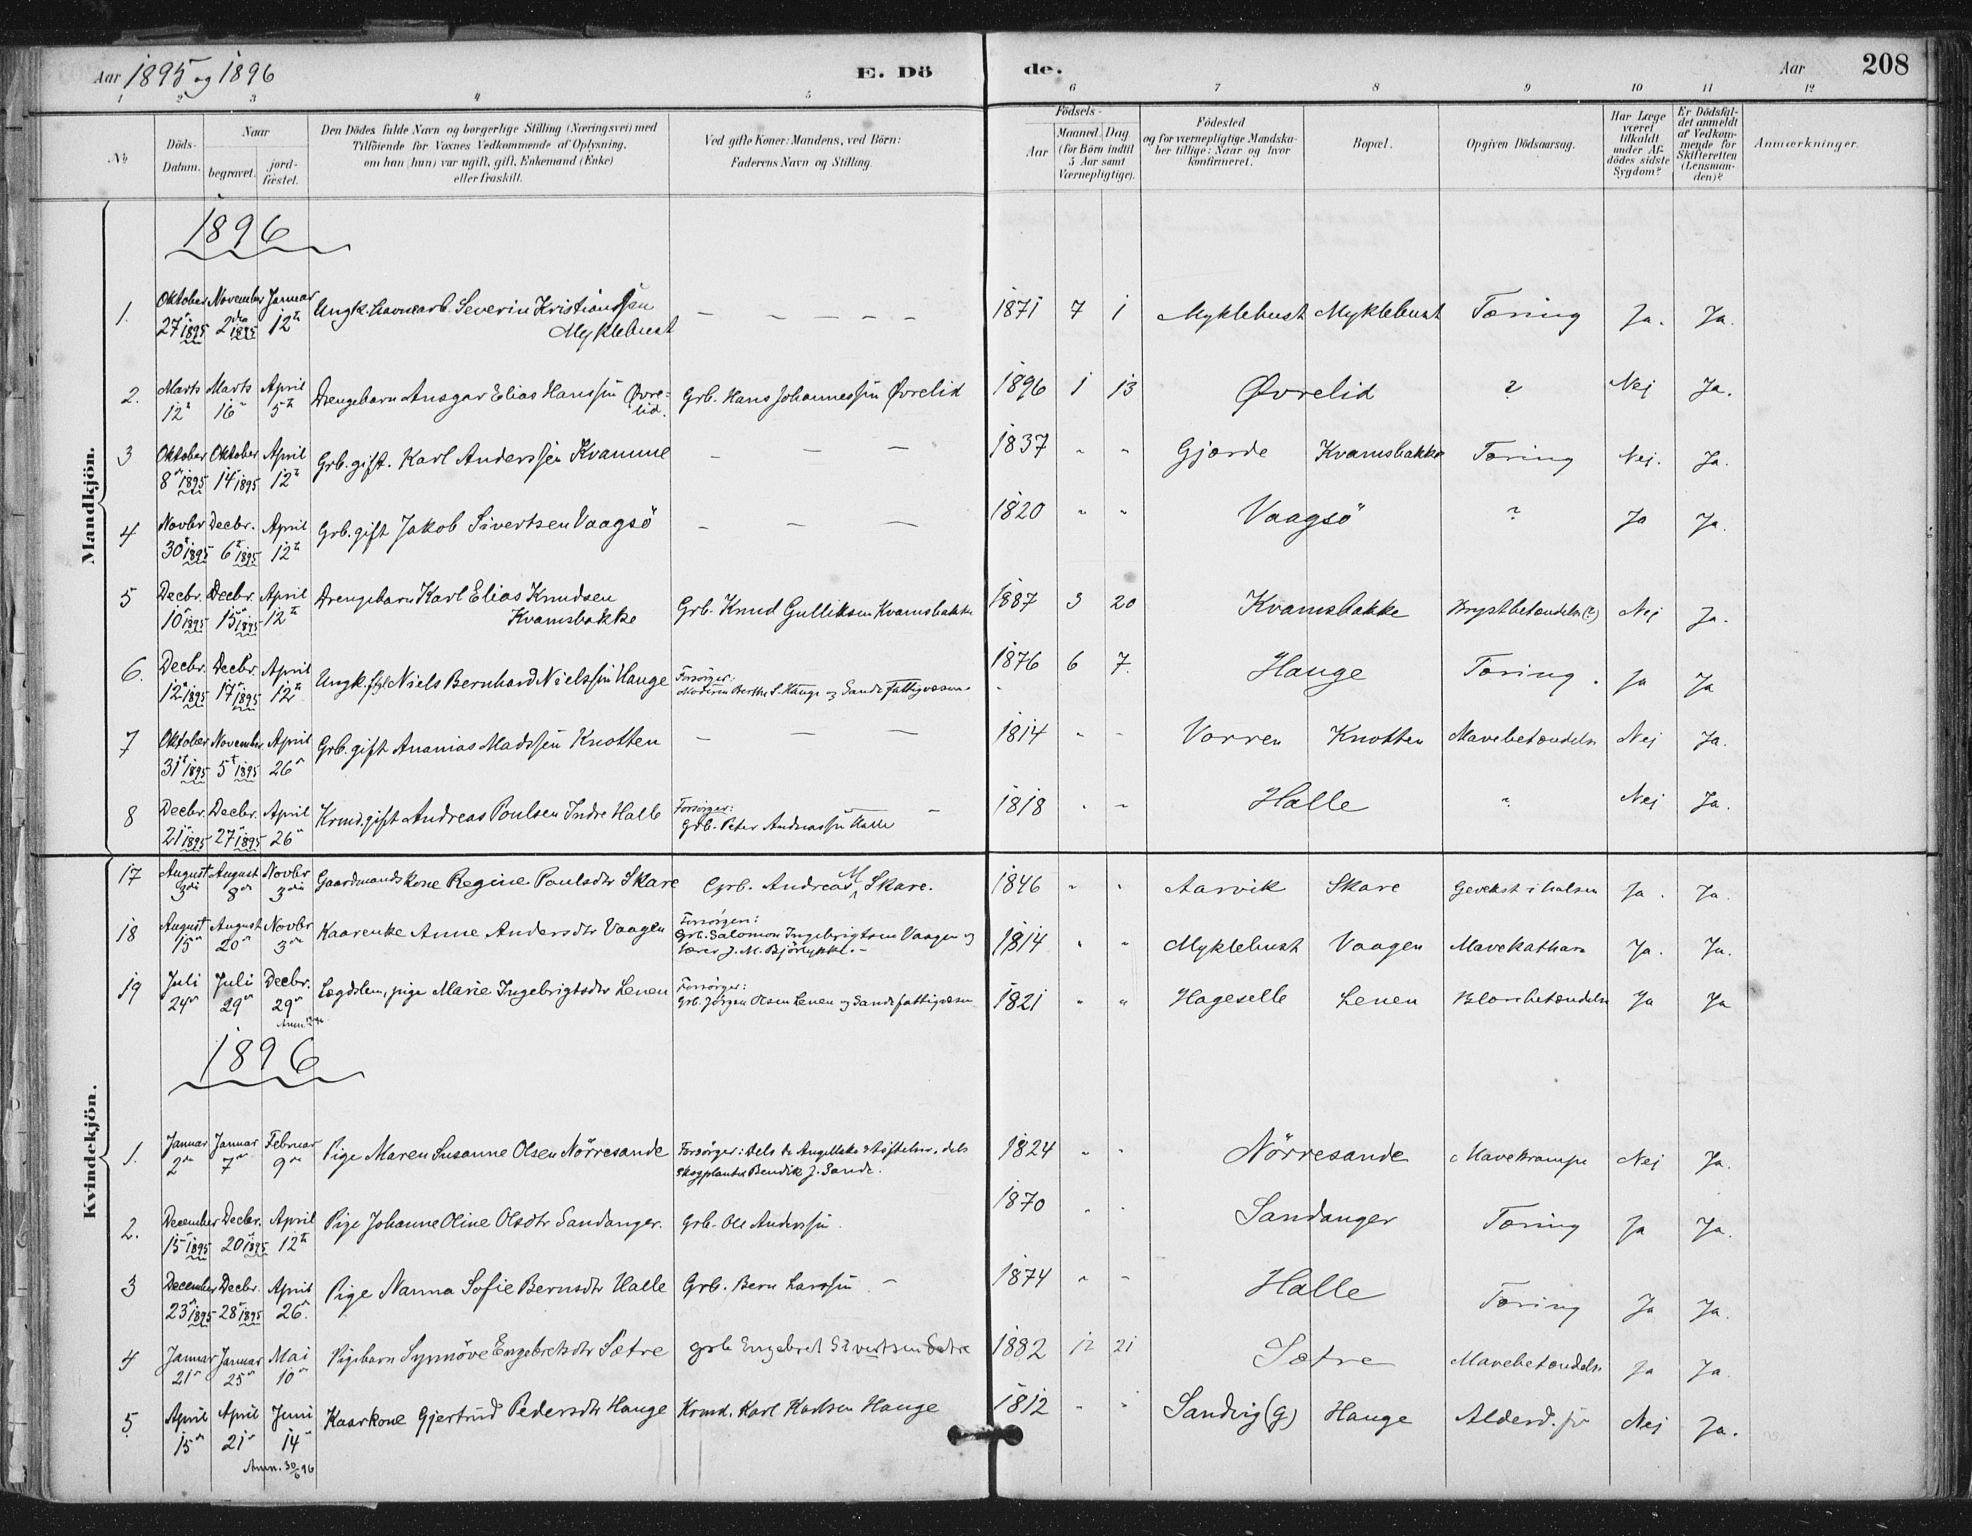 Aar 1895 og 1896 E. Dö de. Aar 208
1 2 3 4 5 6 7 8 9 10 11 12
No
Döds-Datum.
Naar
begravet.
jord-fæstet.
Den Dödes fulde Navn og borgerlige Stilling (Næringsvei) med
Tilföiende for Voxnes Vedkommende af Oplysning,
om han (hun) var ugift, gift, Enkemand (Enke)
eller fraskilt.
Ved gifte Koner: Mandens, ved Börn:
Faderens Navn og Stilling.
Födsels-
Aar
Maaned. Dag
(for Börn indtil
5 Aar samt
Værnepligtige).
Födested
og for værnepligtige Mandska-
ber tillige: Naar og hvor
konfirmeret.
Bopæl.
Opgiven Dödsaarsag.
Har Læge
været
tilkaldt
under Af-
dödes sidste
Sygdom?
Er Dödsfal-
det anmeldt
af Vedkom-
mende for
Skifteretten
(Lensman-
den)?
Anmærkninger.
Mandkjön.
1896
1. Oktober 27 1895 November 2den 1895 Januar 12te Ungk. Severin Kristianssen Myklebust — — — — — 1871 7 1 Myklebust Myklebust Tæring Ja. Ja.
2. Marts 12te Marts 16 April 5te Drengebarn Ansgar Elias Hanssen Øvre-lid. Grb. Hans Johannessen Øvrelid 1896 1 13 Øvrelid ? Nej Ja.
3 Oktober 8 1895 Oktober 14 1895 April 12te Grb. gift. Karl Anderssen Kvamme — — — 1837 " " Gjærde Kvamsbakke Tæring Nei. Ja.
4 Novbr 30 1895 Decbr. 6te 1895 April 12te Grb. gift Jakob Sivertsen Vaagsö — — — 1820 " " Vaagsö ? Ja Ja.
5 Decbr. 10 1895 Decbr. 15 1895 April 12te Drengebarn Karl Elias Knudsen Kvamsbakke Grb. Knud Gulliksen Kvamsbakke 1887 3 20 Kvamsbakke Brystbetændelse (?) Nej Ja.
6. Decbr. 12 1895 Decbr. 17 1895 April 12te Ungk. Niels Bernhard Nielssen Hauge Forsörger: Moderen Berthe S. Hauge og Sande Fattigvæsen 1876 6 7. Hauge Tæring. Ja Ja
7 Oktober 31te 1895 November 5te 1895 April 26 Grb. gift Ananias Madssen Knotten — — — 1814 " " Vorren Knotten Mavebetændelse Nej Ja.
8 Decbr. 21 1895 Decbr. 27 1895 April 26 Krmd. gift Andreas Poulsen Indre Halle Forsörger: Grb. Peter Andreassen Halle — 1818 " " Halle ? Nej Ja.
Kvindekjön.
17 August 3die August 8de Novbr 3die Gaardmandskone Regine Poulsdtr Skare Grb. Andreas M Skare. 1846 " " Aarvik Skare Gevekst i halsen Ja. Ja.
18 August 15de August 20de Novbr 3die Kaarenke Anne Andersdtr Vaagen Forsörgere: Grb. Salomon Ingebrigtsen Vaagen og Lærer J. M. Björlykke. — 1814 " " Myklebust Vaagen Mavekathar Ja. Ja.
19 Juli 24de Juli 29de Decbr. 29de Lægdslem, pige Marie Ingebrigtsdtr Lenen Forsörger: Grb. Jörgen Olsen Lenen og Sande fattigvæsen 1821 " " Hageselle Lenen Blærebetændelse Ja Ja
1896
1. Januar 2den Januar 7de Februar 9de Pige Maren Susanne Olsen Nörresande Forsörger: dels de Angellske Stiftelser, dels Skogplanter Bendik J. Sande. 1824 " " Nörresande Mavekrampe Nej Ja.
2. December 15 1895 Decbr. 20 1895 April 12te Pige Johanne Oline Olsdtr Sandanger. Grb. Ole Anderssen. 1870 " " Sandanger Tæring Ja Ja.
3 December 23 1895 Decbr. 28 1895 April 26. Pige Nanna Sofie Bernsdtr Halle Grb. Bern Larssen — 1874 " " Halle Tæring Ja Ja.
4 Januar 21 Januar 25 Mai 10 Pigebarn Synnöve Engebretsdtr Sætre grb Engebret Sivertsen Sætre 1882 12 21 Sætre Mavebetændelse Ja Ja.
5 April 15 April 21 Juni 14 Kaarkone Gjertrud Pedersdtr Hauge Krmd. Karl Karlsen Hauge 1812 " " Sandvig (G) Hauge Alderd. Nej Ja.
Anm. 30/6 96